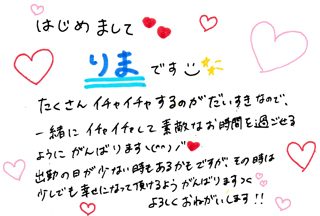 はじめまして
りまです
たくさんイチャイチャするのがだいすきなので、
一緒にイチャイチャして素敵なお時間を過ごせる
ようにがんばりますヽ(^^)ノ
出勤の日が少ない時もあるかもですが、その時は
少しでも幸せになって頂けるようがんばります><
よろしくおねがいします!!